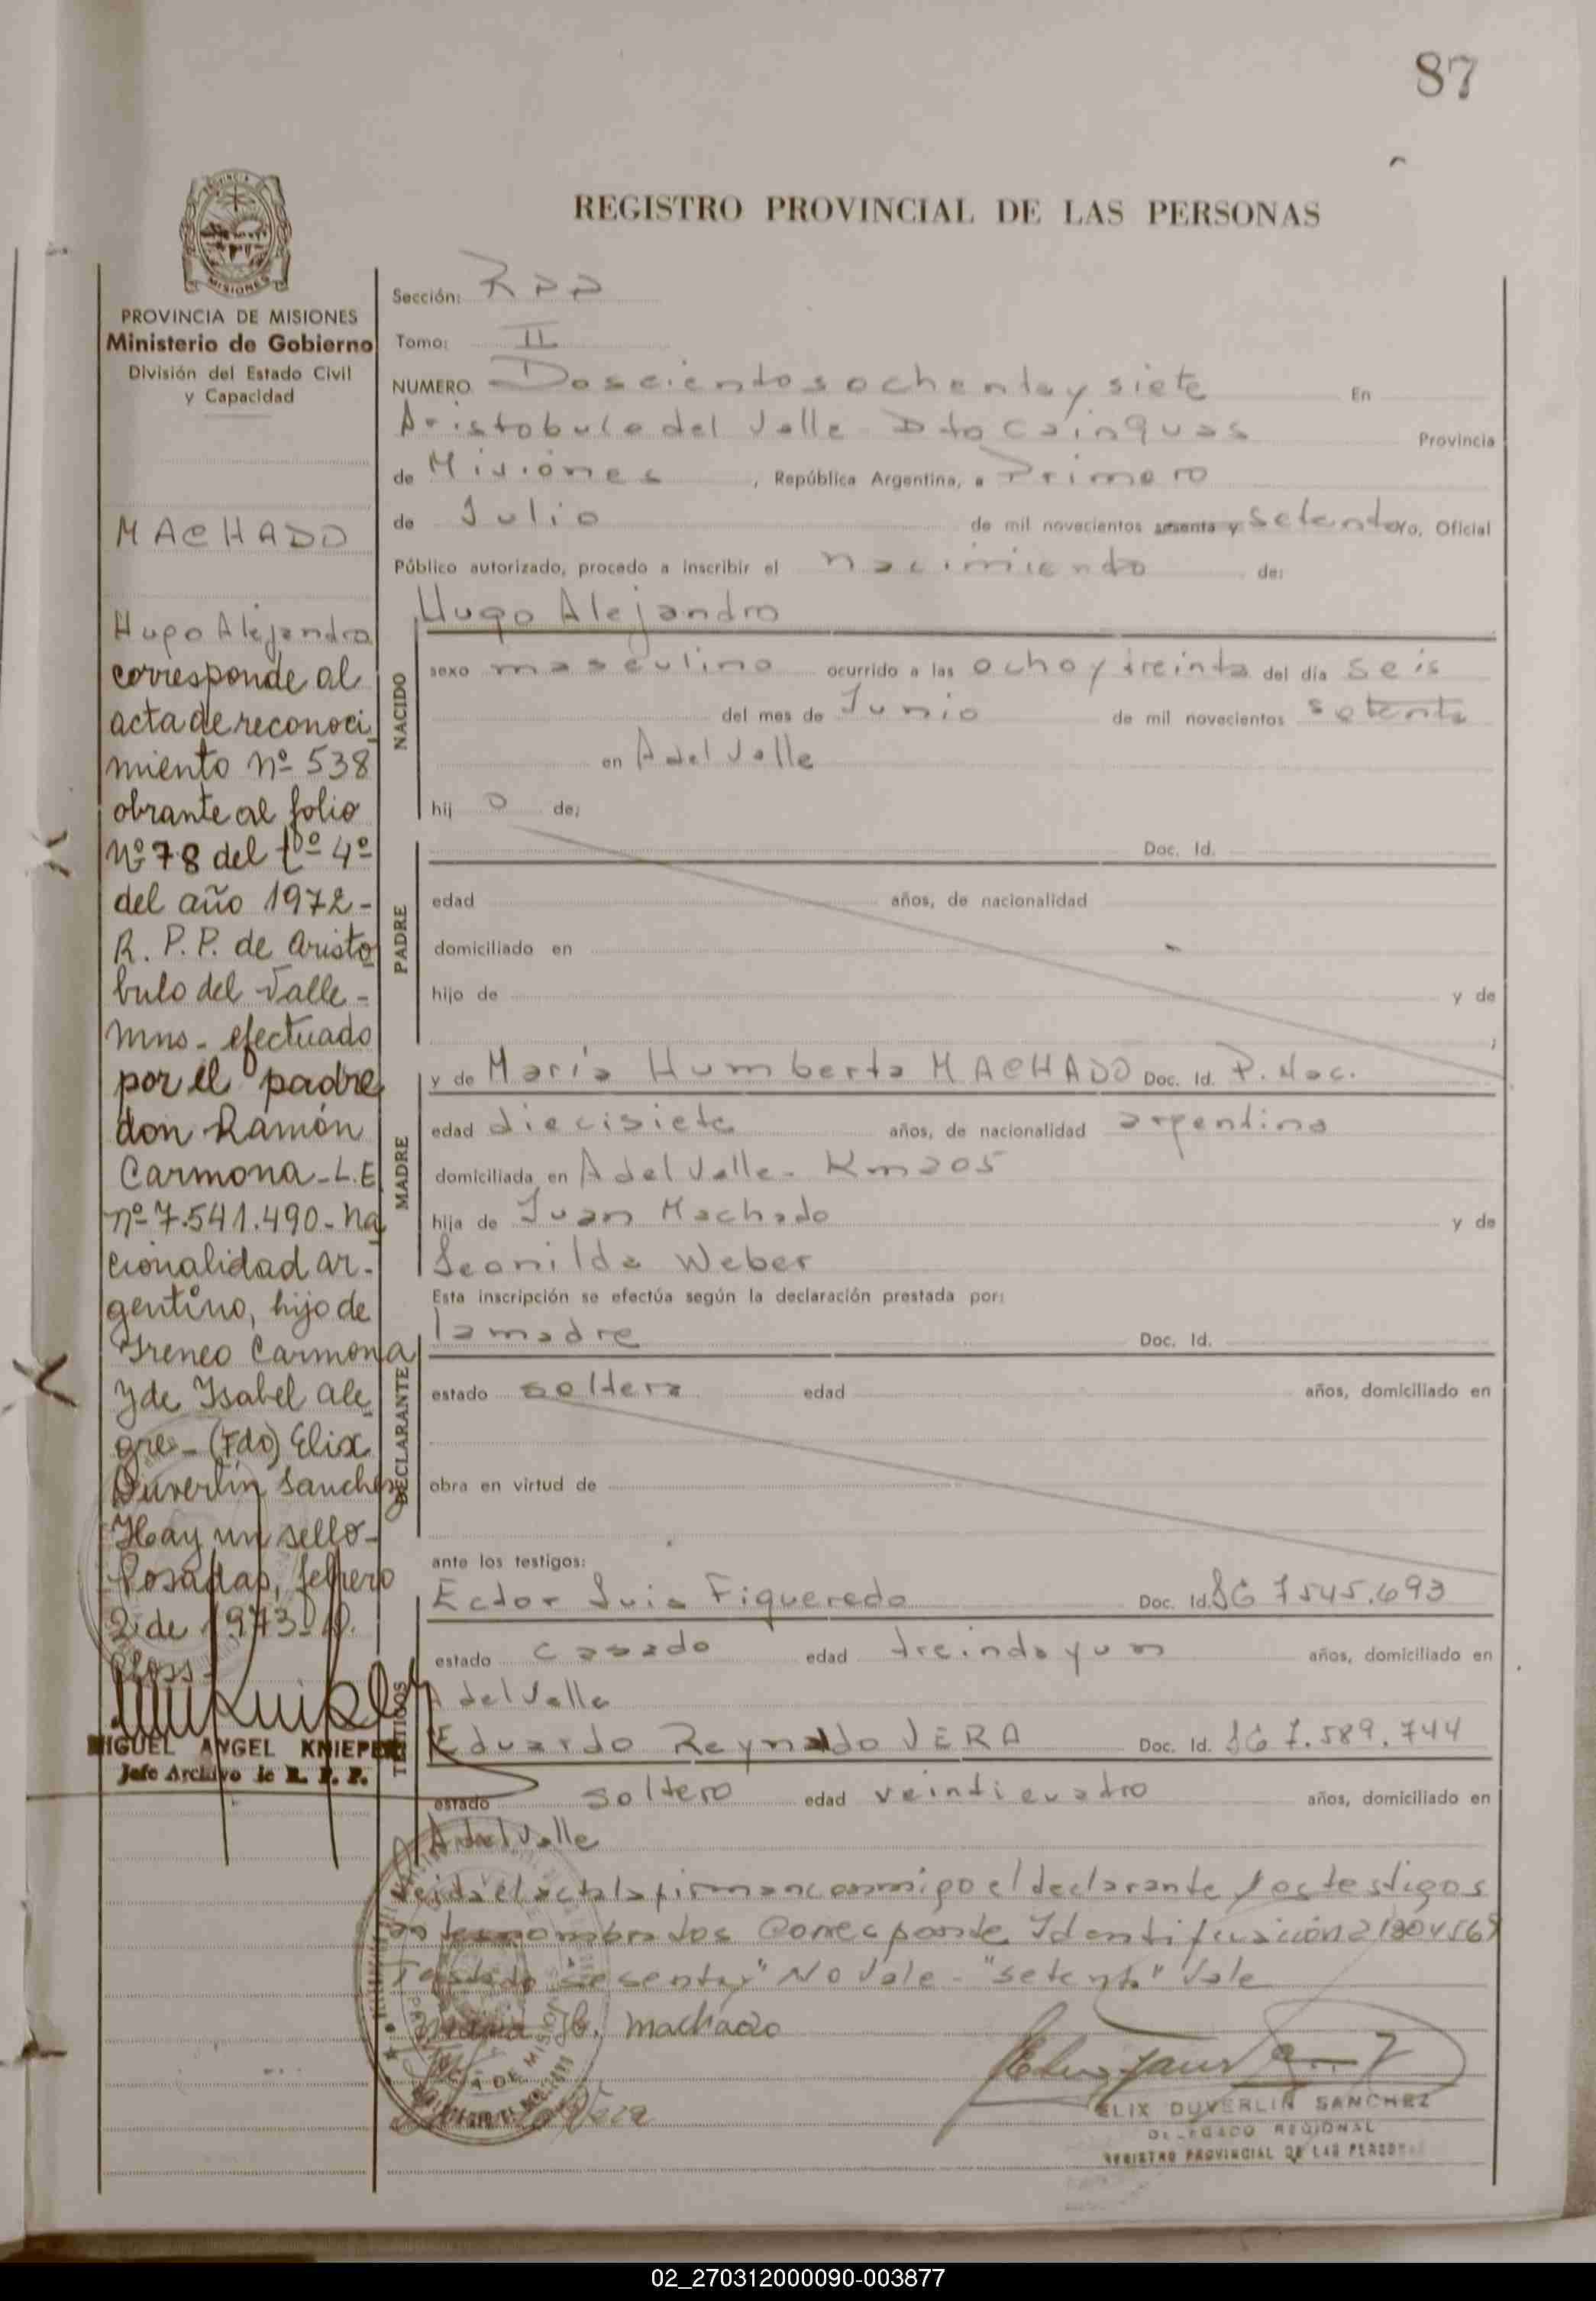 87
REGISTRO PROVINCIAL DE LAS PERSONAS
PROVINCIA
MISIONES
PROVINCIA DE MISIONES
Ministerio de Gobierno
División del Estado Civil
y Capacidad
MACHADO
Hugo Alejandro
corresponde al
acta de reconoci
miento nº 538
obrante al folio
Nº 78 del tº 4º
del año 1972-
R. P. P. de Aristo
bulo del Valle-
Mns- efectuado
por el padre
don Ramón
Carmona-L.E
nº 7.541.490-na
cionalidad ar-
gentino, hijo de
Ireneo Carmona
y de Isabel Ale
gre-(Fdo) Elix
Duverlin Sanchez
Hay un sello-
Posadas, febrero
2 de 1973-
MIGUEL ANGEL KNIEPER
Jefe Archivo de R. P. P.
Sección: RPP
Tomo: II
NUMERO Doscientos ochenta y siete En
Aristobulo del Valle Dto Cainguas Provincia
de Misiones, República Argentina, a Primero
de Julio de mil novecientos sesenta y setenta yo, Oficial
Público autorizado, procedo a inscribir el nacimiento de:
Hugo Alejandro
NACIDO
sexo masculino ocurrido a las ocho y treinta del día seis
del mes de Junio de mil novecientos setenta
en A del Valle
hij o de;
PADRE
Doc. Id.
edad años, de nacionalidad
domiciliado en
hijo de y de
;
MADRE
y de María Humberta MACHADO Doc. Id. P. Nac.
edad diecisiete años, de nacionalidad argentina
domiciliada en A del Valle- Km 205
hija de Juan Machado y de
Leonilda Weber
Esta inscripción se efectúa según la declaración prestada por:
DECLARANTE
la madre Doc. Id.
estado soltera edad años, domiciliado en
obra en virtud de
ante los testigos:
TESTIGOS
Ector Luis Figueredo Doc. Id. 7545.693
estado casado edad treinta y un años, domiciliado en
A del Valle
Eduardo Reynaldo VERA Doc. Id. 7.589.744
estado soltero edad veinticuatro años, domiciliado en
A del Valle
Leida el acta la firman conmigo el declarante y los testigos
antes nombrados Corresponde Identificación
Testado "sesenta y" No Vale - "setenta" Vale
Maria H. Machado
Vera
ELIX DUVERLIN SANCHEZ
DELEGADO REGIONAL
REGISTRO PROVINCIAL DE LAS PERSONAS
02_270312000090-003877